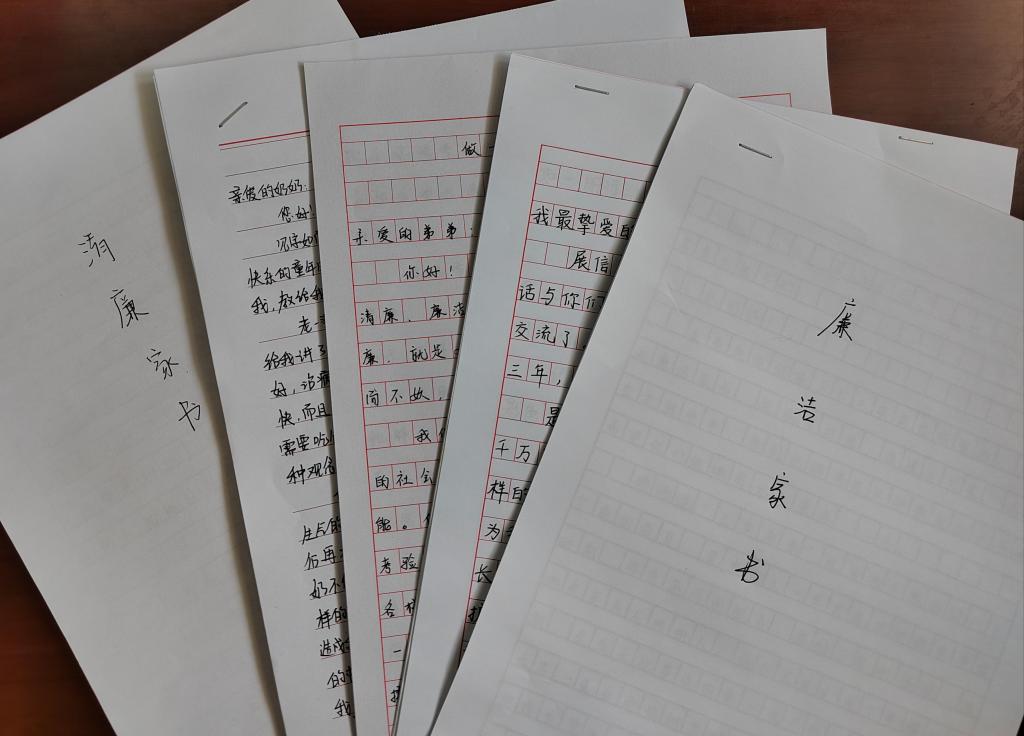 清廉家书
亲爱的奶奶:
您好!
见字如
快乐的童年
我,教给我
老一
给我讲了
好,治病
快,而且
需要吃
种观念
生气的
后再
奶不
样的
造成
的
我
做一
亲爱的弟弟:
你好!
清廉、廉洁
廉,就是
尚不奴,
我们
的社会
能。
考验
各种
一
我最挚爱的
展信
话与你们
交流了
三年,
是
千万
样的
为
长
廉洁家书